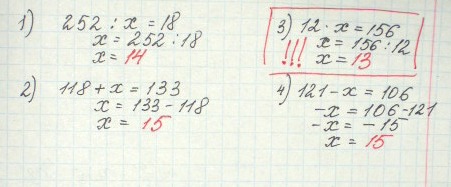 1) 252 : x = 18
x = 252 : 18
x = 14
2) 118 + x = 133
x = 133 - 118
x = 15
3) 12 · x = 156
!!! x = 156 : 12
x = 13
4) 121 - x = 106
-x = 106 - 121
-x = -15
x = 15